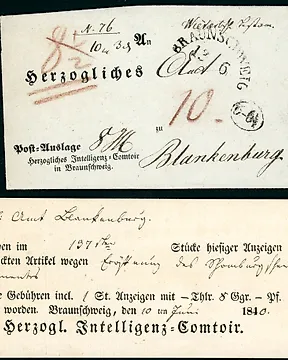 N. 76
8½
An
BRAUNSCHWEIG
Herzogliches Amt
6
10.
zu
Post-Auslage 8
Herzogliches Intelligenz-Comtoir
in Braunschweig.
Blankenburg.
Amt Blankenburg.
en im 137sten Stücke hiesiger Anzeigen
ckten Artikel wegen Eröffnung des
e Gebühren incl. 1 St. Anzeigen mit — Thlr. 8 Ggr. — Pf.
worden. Braunschweig, den 10 ten Juni 1840.
Herzogl. Intelligenz-Comtoir.